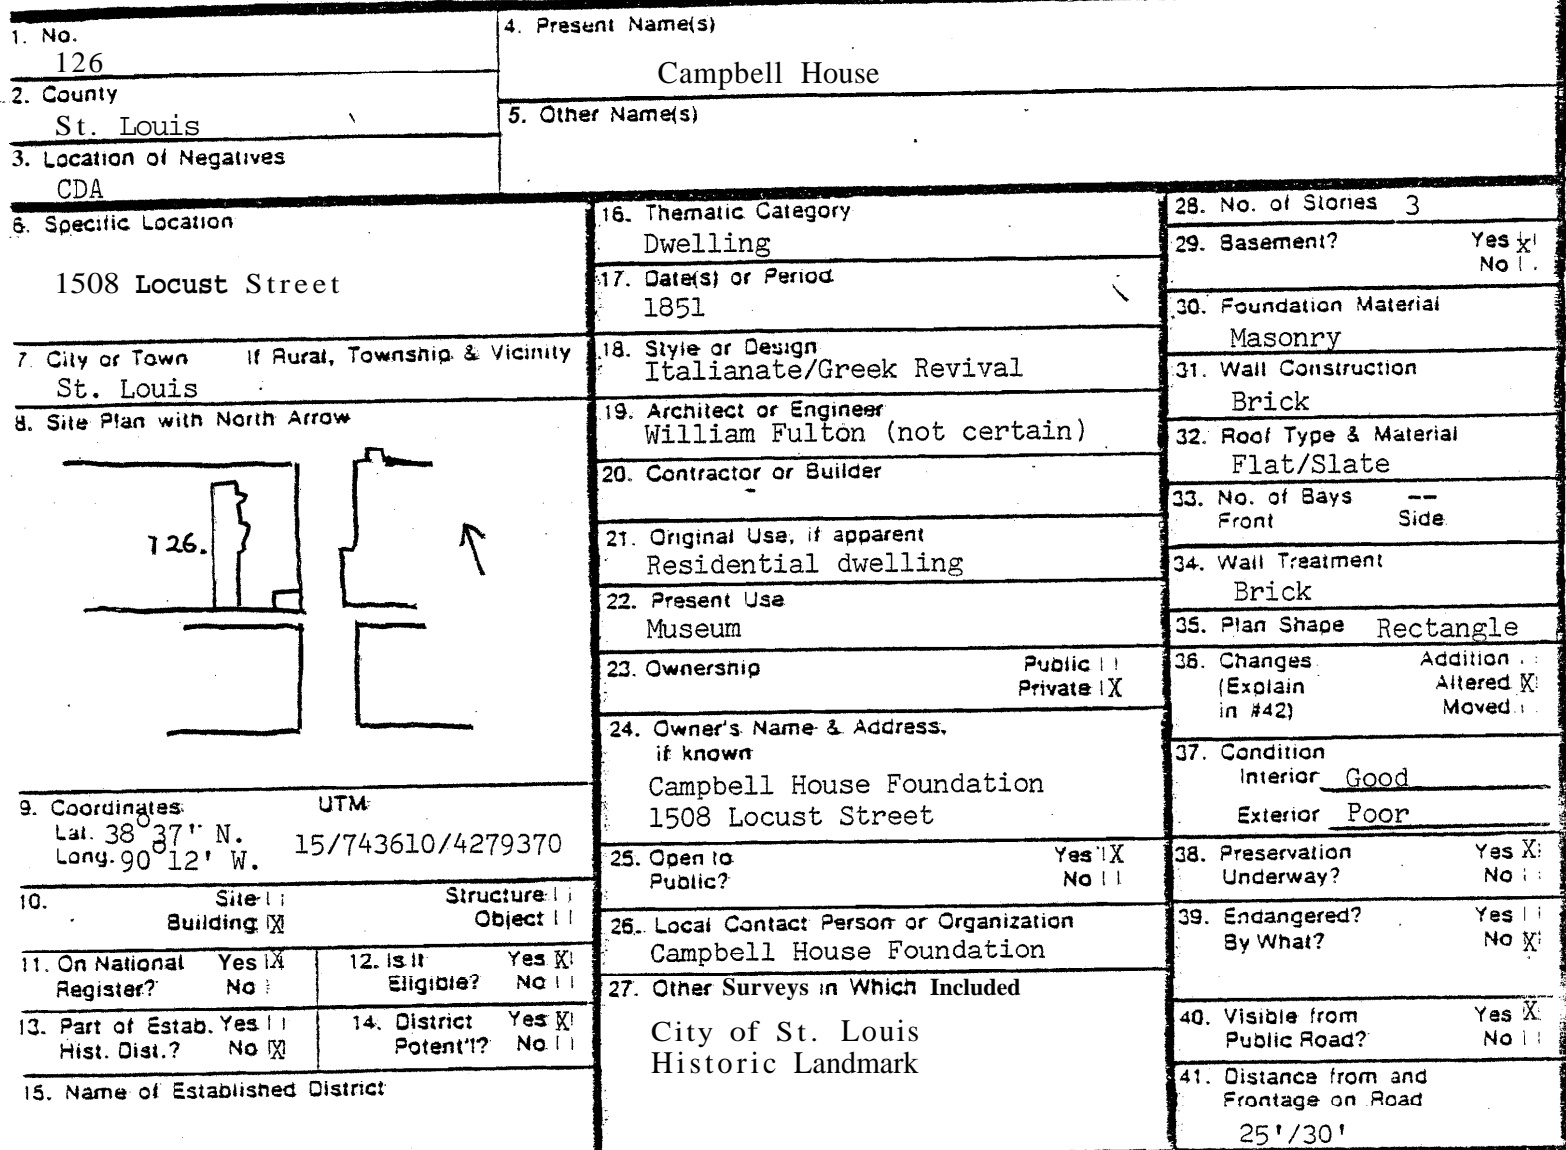 1. No.
126
2. County
St. Louis
3. Location of Negatives
CDA
4. Present Name(s)
Campbell House
5. Other Name(s)
6. Specific Location
1508 Locust Street
7. City or Town If Rural, Township & Vicinity
St. Louis
8. Site Plan with North Arrow
126.
9. Coordinates UTM
Lat. 38° 37' N.
Long. 90° 12' W.
15/743610/4279370
10. Site Structure
Building X Object
11. On National Yes X
Register? No
12. Is it Yes X
Eligible? No
13. Part of Estab. Yes
Hist. Dist.? No X
14. District Yes X
Potent'l? No
15. Name of Established District
16. Thematic Category
Dwelling
17. Date(s) or Period
1851
18. Style or Design
Italianate/Greek Revival
19. Architect or Engineer
William Fulton (not certain)
20. Contractor or Builder
-
21. Original Use, if apparent
Residential dwelling
22. Present Use
Museum
23. Ownership Public
Private X
24. Owner's Name & Address,
if known
Campbell House Foundation
1508 Locust Street
25. Open to Yes X
Public? No
26. Local Contact Person or Organization
Campbell House Foundation
27. Other Surveys in Which Included
City of St. Louis
Historic Landmark
28. No. of Stories 3
29. Basement? Yes X
No
30. Foundation Material
Masonry
31. Wall Construction
Brick
32. Roof Type & Material
Flat/Slate
33. No. of Bays --
Front Side
34. Wall Treatment
Brick
35. Plan Shape Rectangle
36. Changes Addition
(Explain Altered X
in #42) Moved
37. Condition
Interior Good
Exterior Poor
38. Preservation Yes X
Underway? No
39. Endangered? Yes
By What? No X
40. Visible from Yes X
Public Road? No
41. Distance from and
Frontage on Road
25'/30'